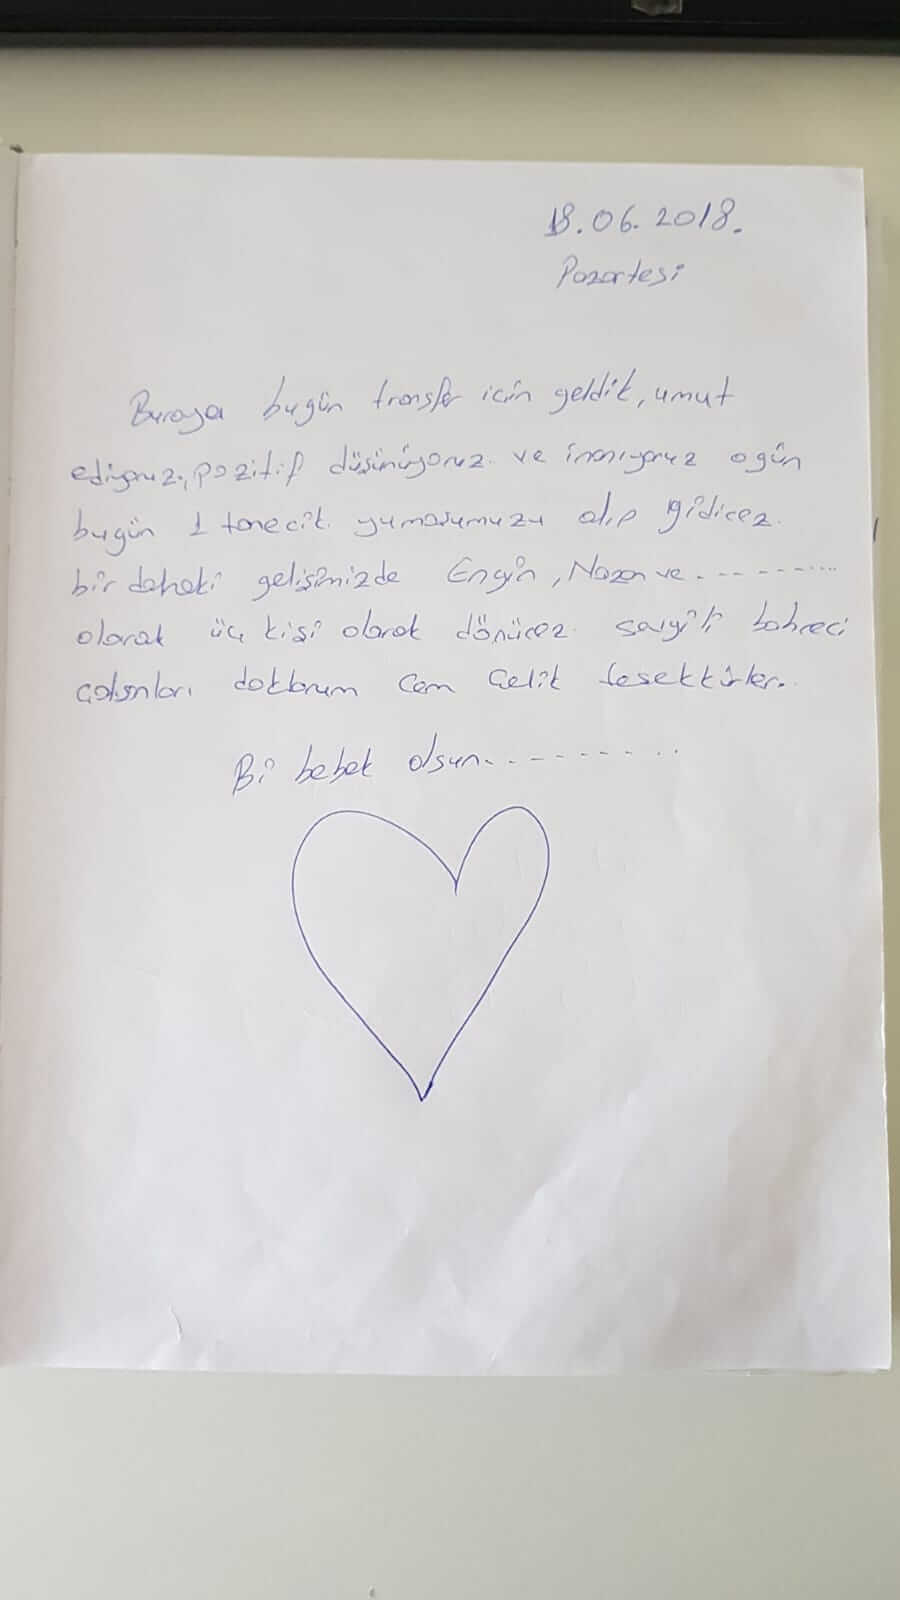 18.06.2018.
Pazartesi
Buraya bugün transfer için geldik, umut
ediyoruz, pozitif düşünüyoruz. ve inanıyoruz ogün
bugün 1 tanecik yumasumuzu alıp gidicez.
bir dahaki gelişimizde Engin, Nazan ve ..........
olarak üç kişi olarak dönücez. saygılı bahceci
çalışnları doktorum Cem Çelik teşekkürler..
Bi bebek olsun..........